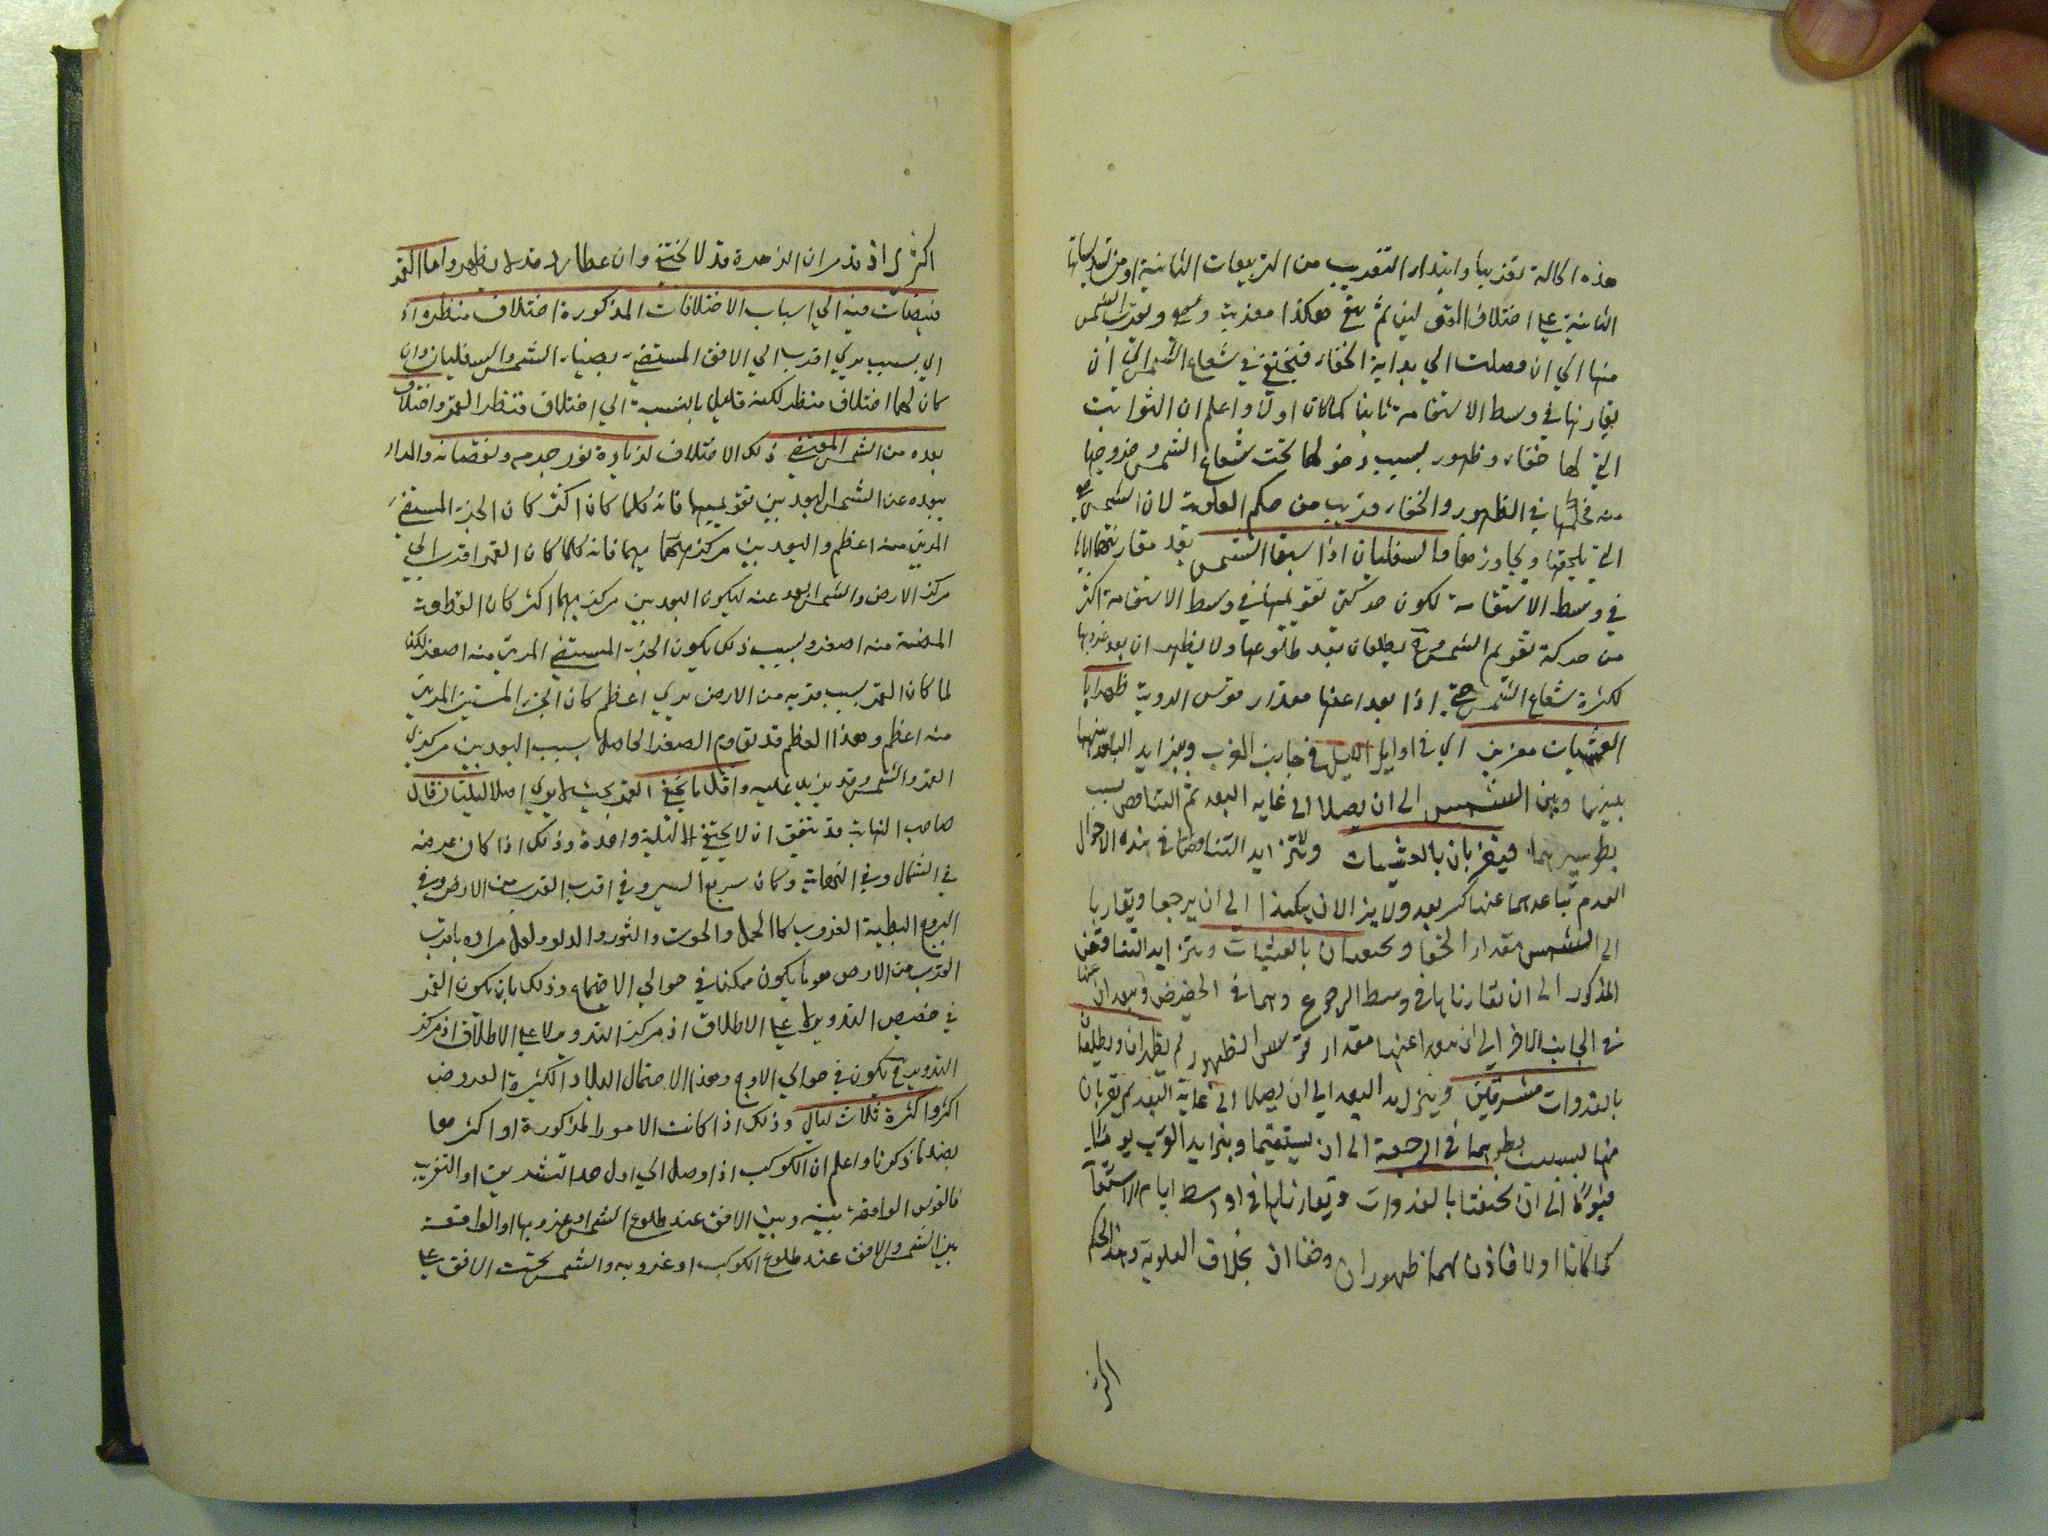 هذه الحالة تقريبا وابتداء التغريب من التربيعات الثانية او من تسديساتها
الثانية على اختلاف القولين ثم تبقى هكذا مغربة وتقرب الشمس
منها الى ان وصلت الى بداية الخفاء فتختفى في شعاع الشمس الى ان
يقارنها في وسط الاستقامة ثانيا كما كان اولا واعلم ان الثوابت
التي لها خفاء وظهور بسبب دخولها تحت شعاع الشمس وخروجها
منه فحكمها في الظهور والخفاء قريب من حكم العلوية لان الشمس هي
التي تلحقها وتجاوزها واما السفليان اذا سبقا الشمس بعد مقارنتهما اياها
في وسط الاستقامة لكون حركتي تقويميهما في وسط الاستقامة اكثر
من حركة تقويم الشمس وح يطلعان بعد طلوعها ولا يظهران بعد غروبها
لكثرة شعاع الشمس حتى اذا بعدا عنها مقدار قوس الروية ظهرا با
لعشيات مغربين اي في اوايل الليل في جانب الغرب ويتزايد البعد بينهما
بينهما وبين الشمس الى ان يصلا الى غاية البعد ثم التناقص بسبب
بطؤ سيرهما فيقربان بالعشيات وتتزايد التناقص في هذه الاحوال
لعدم تباعدهما عنها كثير بعد ولا يزالان هكذا الى ان يرجعا ويقاربا
الى الشمس مقدار الخفا ويختفيان بالعشيات ويتزايد التناقص
المذكور الى ان تقارناها في وسط الرجوع وهما في الحضيض ويبعدان عنها
في الجانب الاخر الى ان بعدا عنها مقدار قوس الظهور ثم يظهران ويطلعان
بالغدوات مشرقين ويتزايد البعد الى ان يصلا الى غاية البعد ثم يقربان
منها بسبب بطؤهما في الرجعة الى ان يستقيما ويتزايد القرب يوما
فيوما الى ان تختفيا بالغدوات وتقارناها في اواسط ايام الاستقامة
كما كانا اولا فاذن لهما ظهوران وخفاان بخلاف العلوية وهذا الحكم
اكثري
اكثرى اذ قد مر ان الزهرة قد لا تختفى وان عطارد قد لا يظهر واما القمر
فيضاف فيه الى اسباب الاختلافات المذكورة اختلاف منظره اذ
اى بسبب يرى اقرب الى الافق المستضئ بضياء الشمس والسفليان وان
كان لهما اختلاف منظر لكنه قليل بالنسبة الى اختلاف منظر القمر واختلاف
بعده من الشمس المقتضى ذلك الاختلاف لزيادة نور جرمه ونقصانه والمراد
ببعده عن الشمس البعد بين تقويميهما فانه كلما كان اكثر كان الجزء المستضئ
المرئى منه اعظم والبعد بين مركزيهما فانه كلما كان القمر اقرب الى
مركز الارض والشمس ابعد عنه ليكون البعد بين مركزيهما اكثر كان القطعة
المضئة منه اصغر وبسبب ذلك يكون الجزء المستضئ المرئى منه اصغر لكن
لما كان القمر بسبب قربه من الارض يرى اعظم كان الجزء المستنير المرئى
منه اعظم وهذا العظم قد يقاوم الصغر الحاصل بسبب البعد بين مركزى
القمر والشمس وقد يزيد عليه واقل ما يختفى القمر بحيث لا يرى اصلا ليلتان قال
صاحب النهاية قد يتفق ان لا يختفى الا ليلة واحدة وذلك اذا كان عرضه
في الشمال وفي النهاية وكان سريع السير وفي اقرب القرب من الارض وفي
البروج البطيئة الغروب كالحمل والحوت والثور والدلو ولعل مراده باقرب
القرب من الارض هو ما يكون ممكنا في حوالى الاجتماع وذلك بان يكون القمر
في حضيض التدوير لا على الاطلاق اذ مركز التدوير لا على الاطلاق اذ مركز
التدوير ح يكون في حوالى الاوج وهذا الاحتمال البلاد الكثيرة العروض
اكثر واكثره ثلاث ليال وذلك اذا كانت الامور المذكورة او اكثرها
بضد ما ذكرنا واعلم ان الكوكب اذا وصل الى اول حد التشريق او التغريب
فالقوس الواقعة بينه وبين الافق عند طلوع الشمس او غروبها او الواقعة
بين الشمس والافق عند طلوع الكوكب او غروبه والشمس تحت الافق على